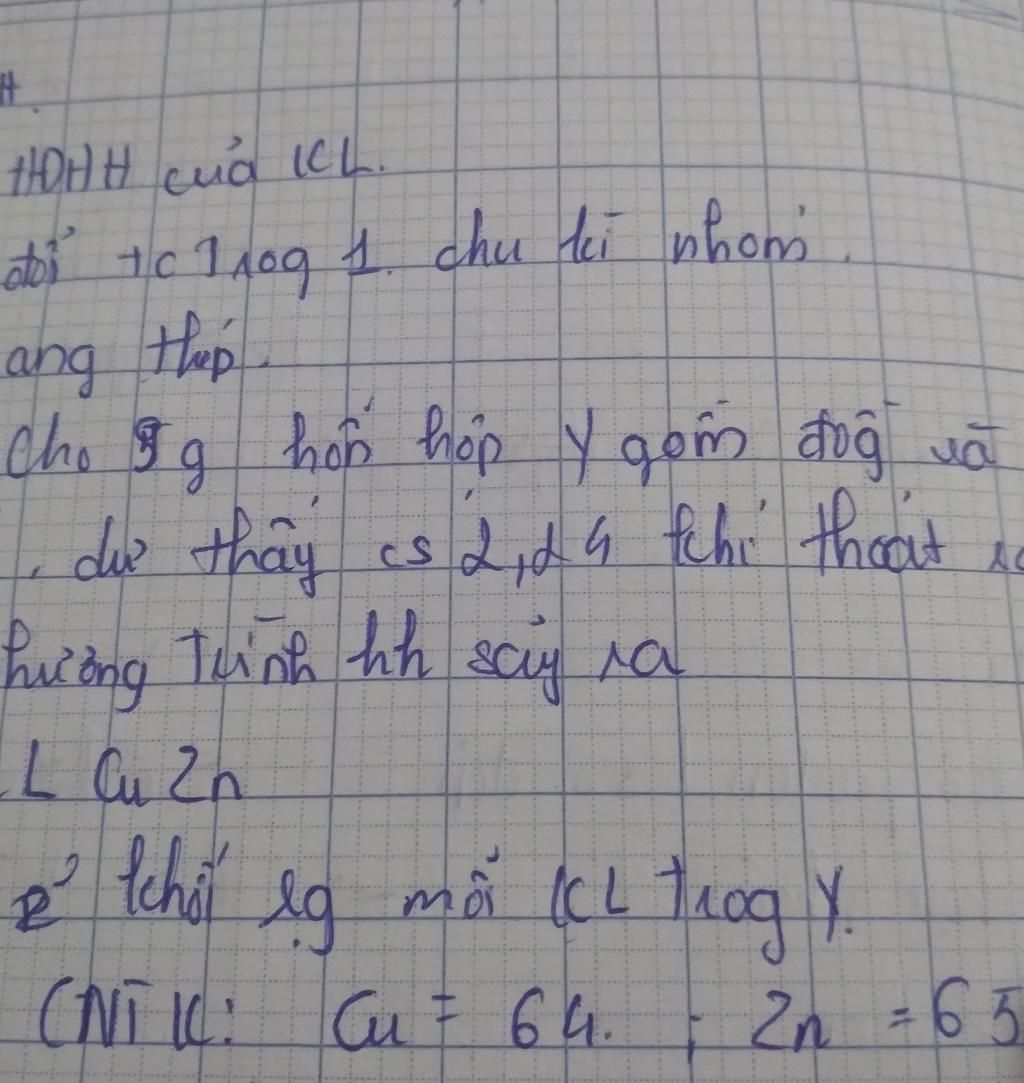 H.
HĐHH của KL.
đổi tc Trog 1. chu kì nhóm.
ang thép.
Cho 5g hỗn hợp Y gồm đồg và
. dư thấy cs 2,24 khí thoát ra
hương Trình hh sảy ra
L Cu Zn
% khối lg mỗi KL Trog Y.
(NTK: Cu = 64. ; Zn = 65